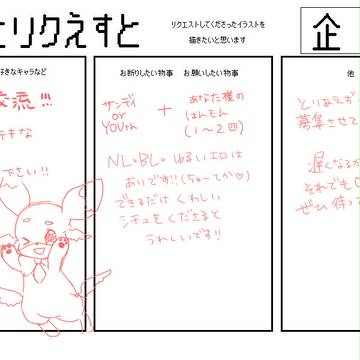 とりくえすと
リクエストしてくださったイラストを
描きたいと思います
企
好きなキャラなど
お断りしたい物事 お願いしたい物事
他
交流!!!
テキな
下さい!!
サンディ
or
YOUth
+
あなた様の
はんもん
(1~2回)
NL・BL・ゆるいエロは
ありです!!(ちゅーとか♡)
できるだけくわしい
シチュをくださると
うれしいです!!
とりあえず
募集させて
遅くなるか
それでも♡
ぜひ待って